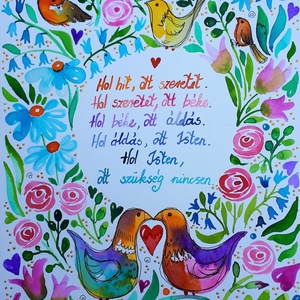 Hol hit, ott szeretet.
Hol szeretet, ott béke.
Hol béke, ott áldás.
Hol áldás, ott Isten.
Hol Isten,
ott szükség nincsen.